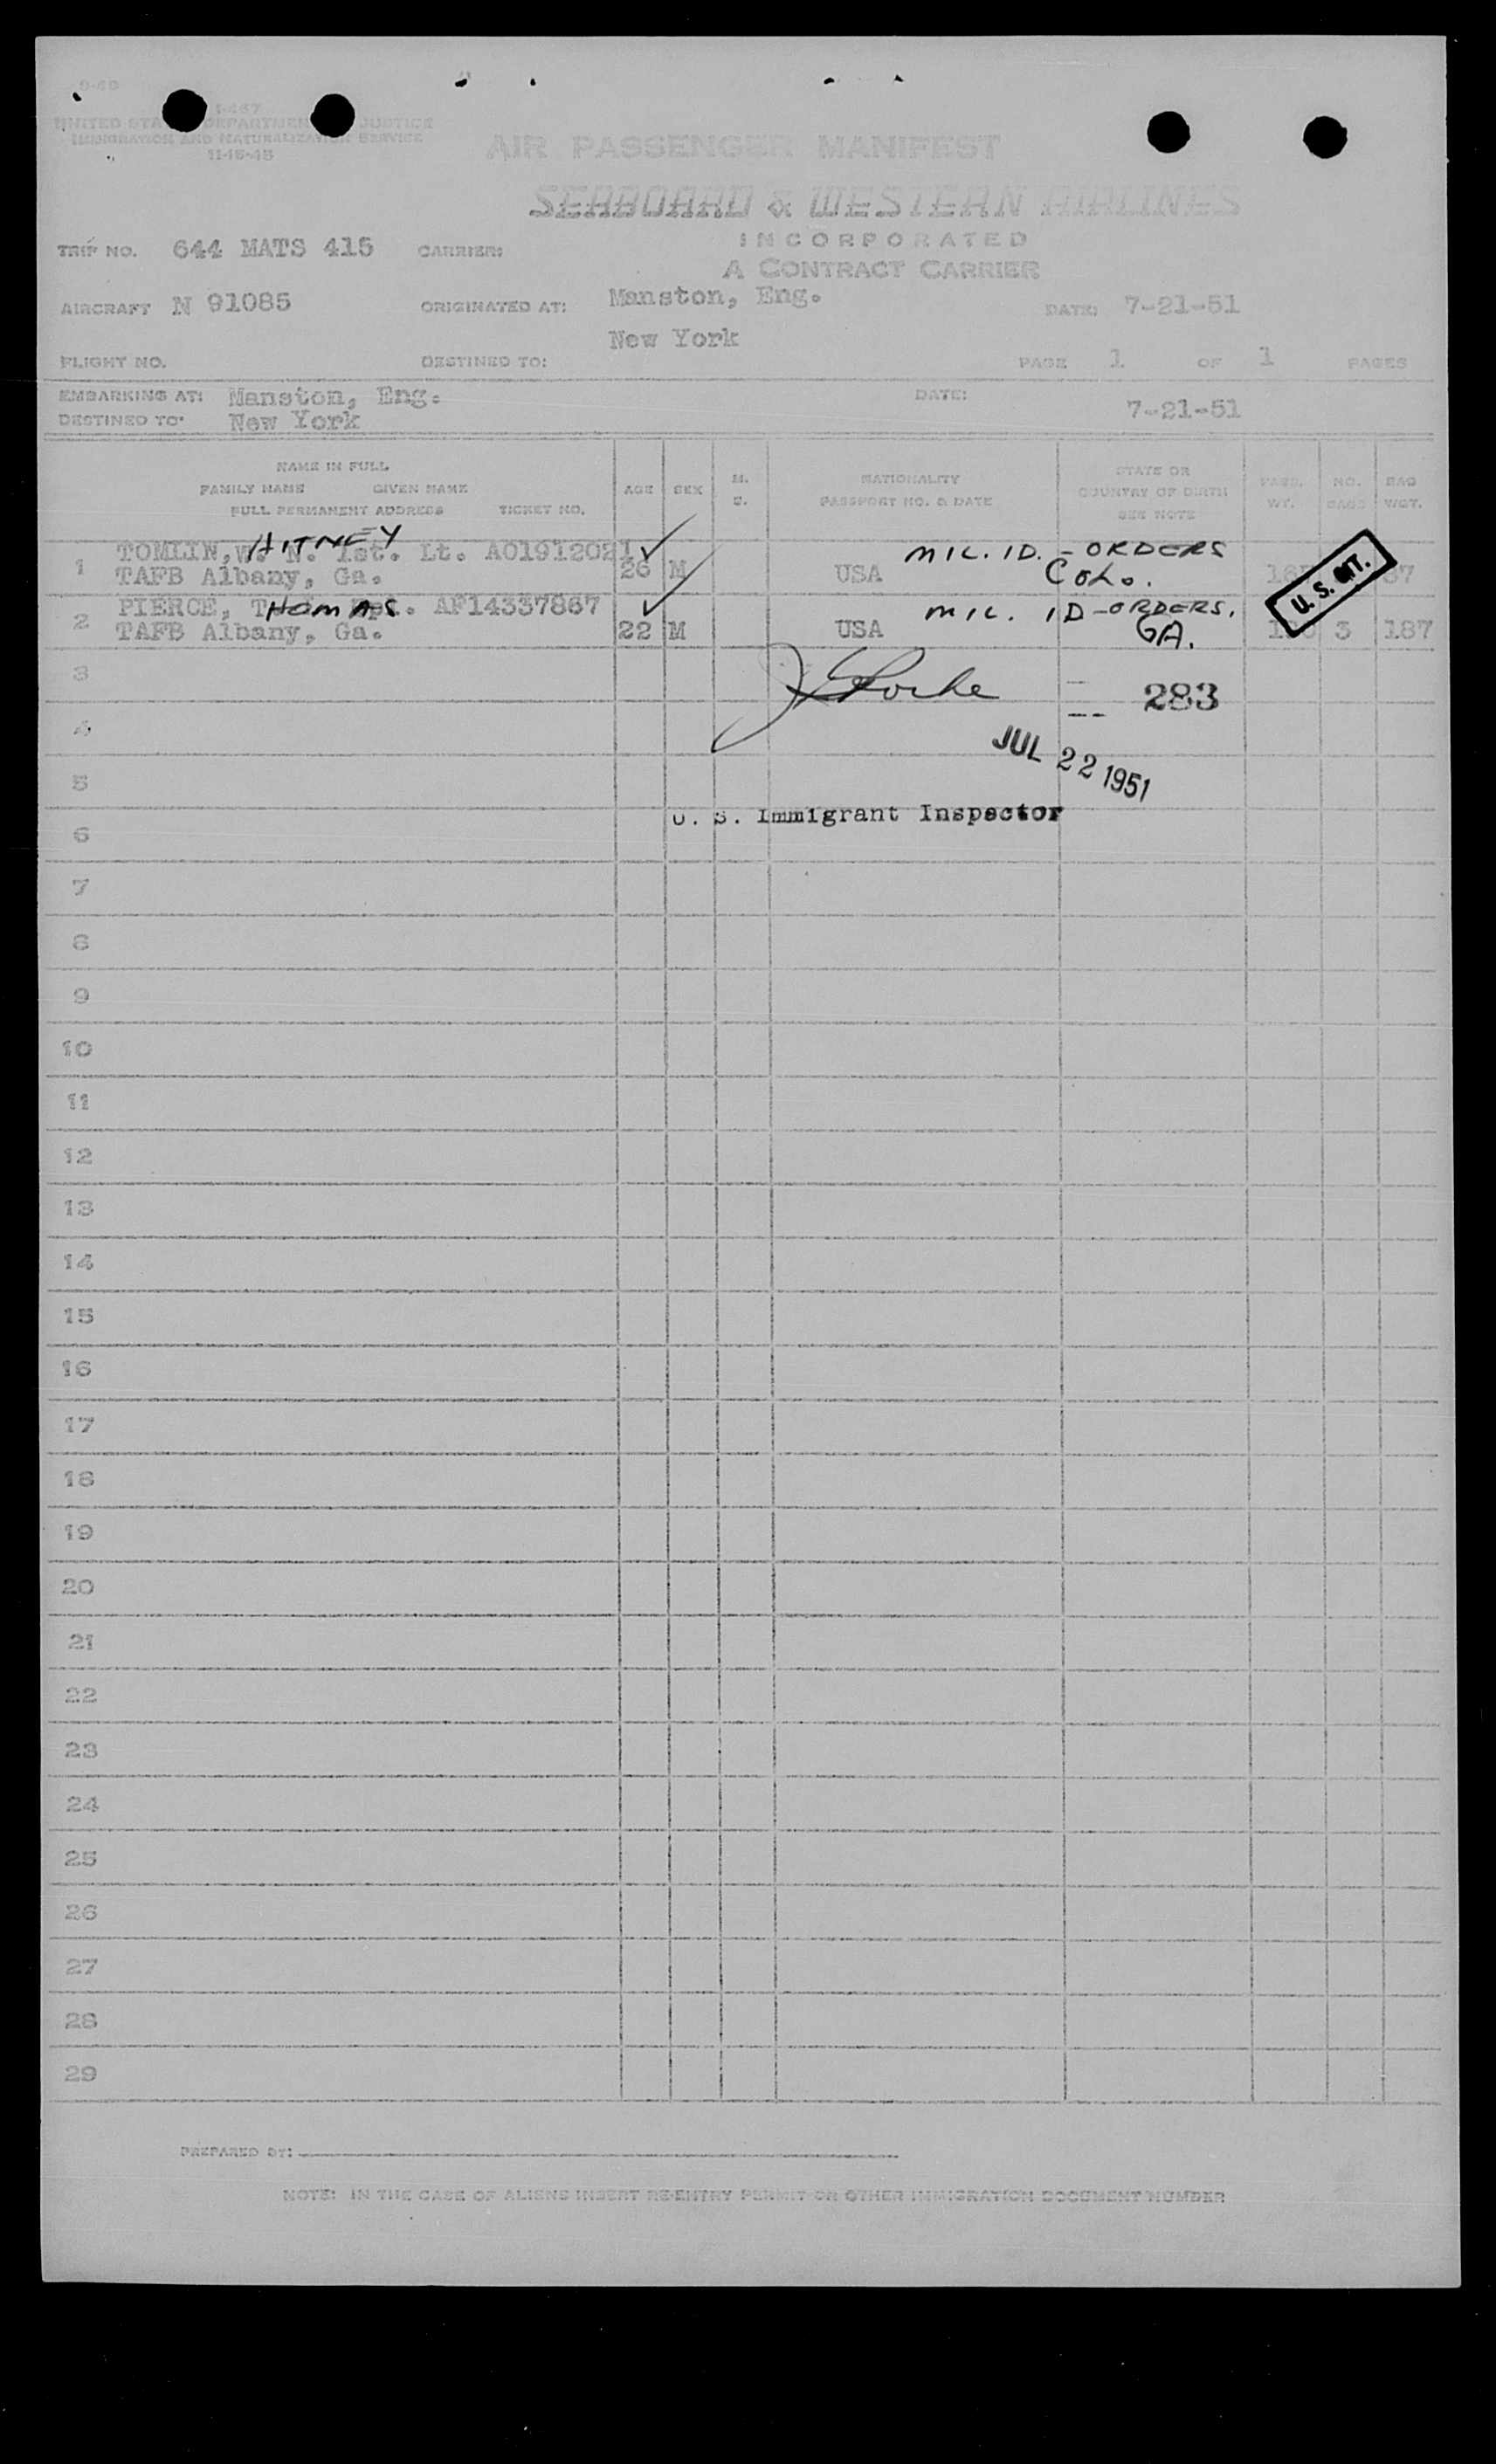 9-49
I-467
UNITED STATES DEPARTMENT OF JUSTICE
IMMIGRATION AND NATURALIZATION SERVICE
11-15-45
AIR PASSENGER MANIFEST
SEABOARD & WESTERN AIRLINES
INCORPORATED
A CONTRACT CARRIER
TRIP NO. 644 MATS 415 CARRIER:
AIRCRAFT N 91085 ORIGINATED AT: Manston, Eng. DATE: 7-21-51
FLIGHT NO. DESTINED TO: New York PAGE 1 OF 1 PAGES
EMBARKING AT: Manston, Eng. DATE: 7-21-51
DESTINED TO: New York
NAME IN FULL
FAMILY NAME GIVEN NAME
FULL PERMANENT ADDRESS TICKET NO.
AGE SEX M. S.
NATIONALITY
PASSPORT NO. & DATE
STATE OR
COUNTRY OF BIRTH
SEE NOTE
PASS. WT. NO. BAGS BAG WGT.
1 TOMLIN, W. HITNEY N. 1st. Lt. AO1912021 MIL. ID. - ORDERS
TAFB Albany, Ga. 26 M USA COLO. U. S. CIT.
2 PIERCE, T HOMAS AF14337867 MIL. ID - ORDERS.
TAFB Albany, Ga. 22 M USA GA. 3 187
3
283
4
JUL 22 1951
5
U. S. Immigrant Inspector
6
7
8
9
10
11
12
13
14
15
16
17
18
19
20
21
22
23
24
25
26
27
28
29
PREPARED BY:
NOTE: IN THE CASE OF ALIENS INSERT RE-ENTRY PERMIT OR OTHER IMMIGRATION DOCUMENT NUMBER